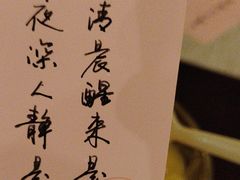 清晨醒来是
夜深人静是